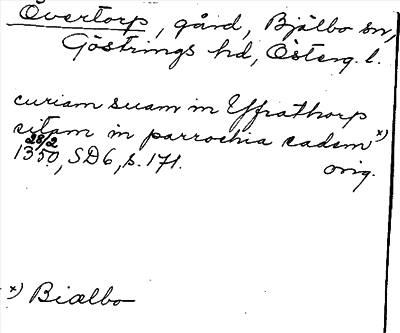 Övertorp, gård, Bjälbo sn,
Göstrings hd, Österg. l.
curiam suam in Yffrathorp
sitam in parrochia eadem x)
28/2
1350, SD6, s. 171. orig.
x) Biælbo